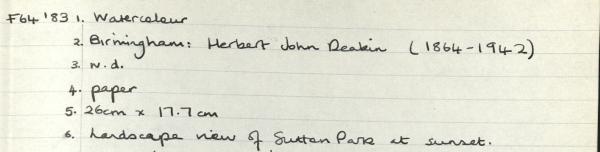 F64 '83 1. Watercolour
2. Birmingham: Herbert John Deakin (1864-1942)
3. N.d.
4. paper
5. 26cm x 17.7cm
6. Landscape view of Sutton Park at sunset.